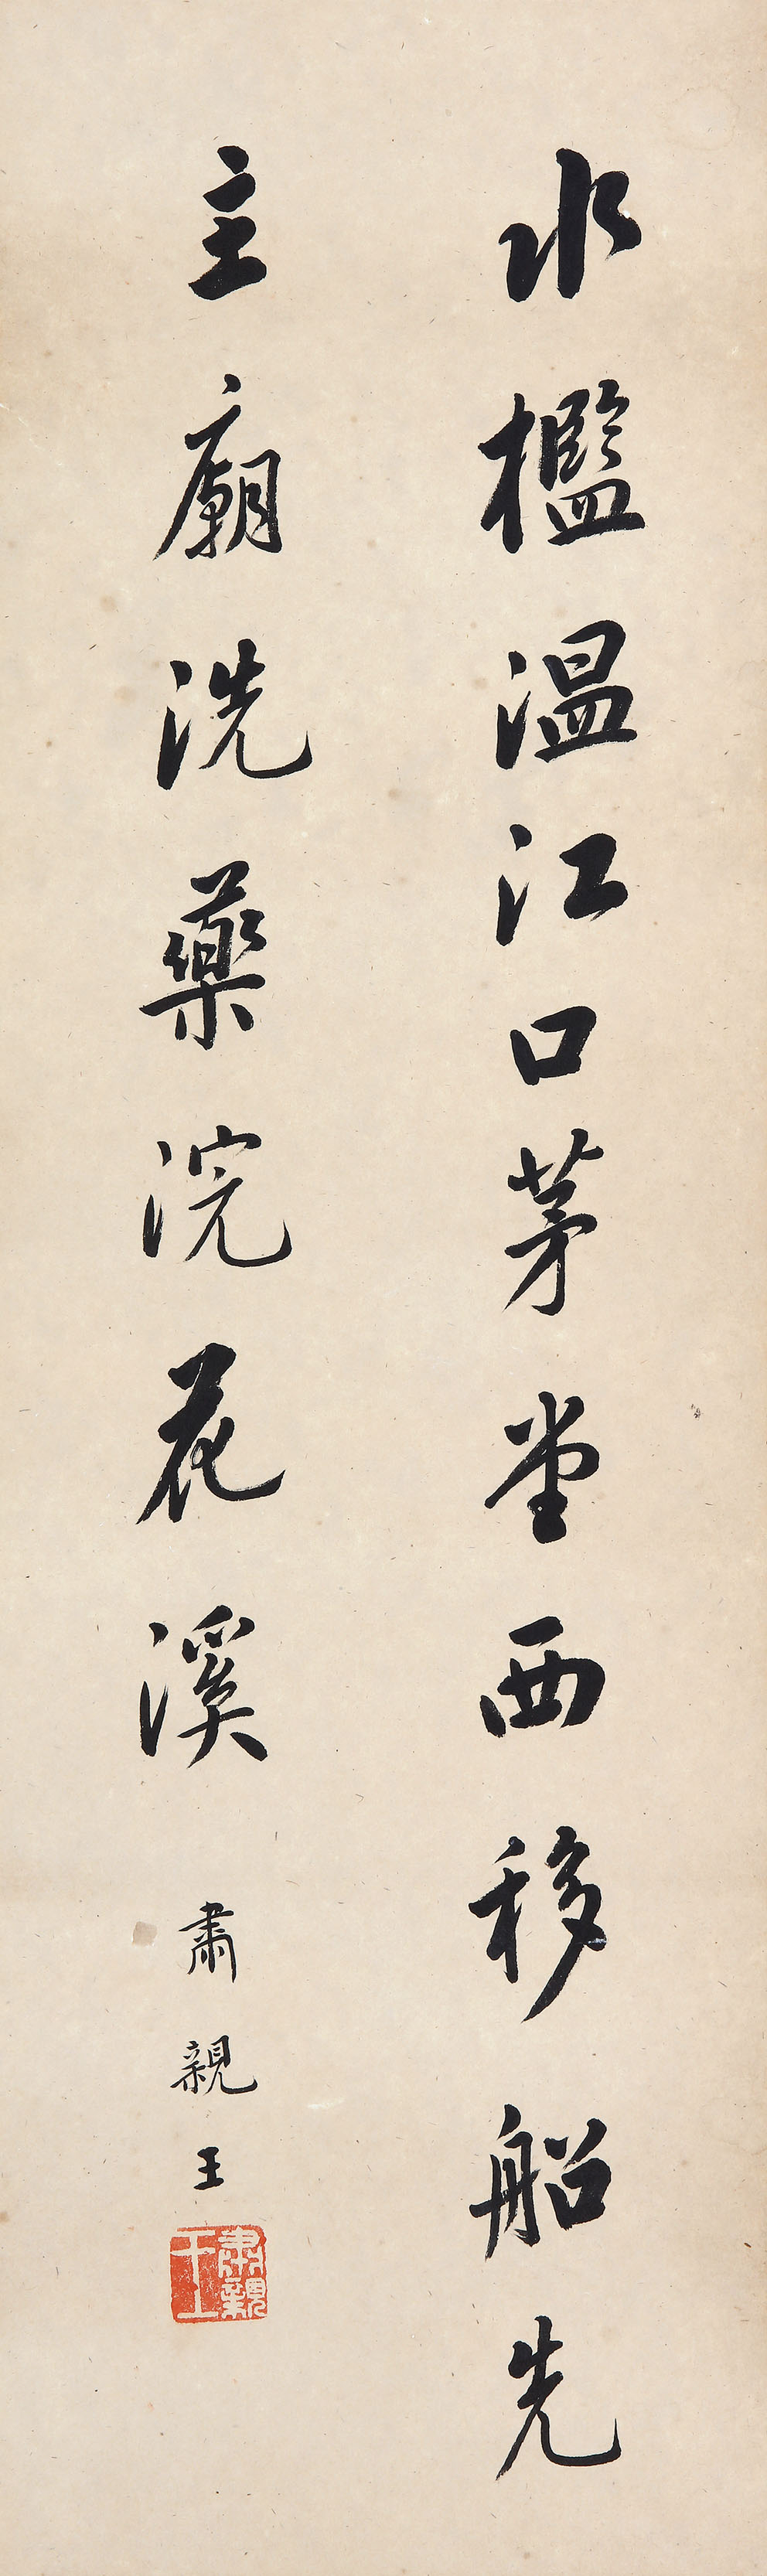 水檻溫江口茅堂西移船先
主廟洗藥浣花溪
肅親王
肅親王